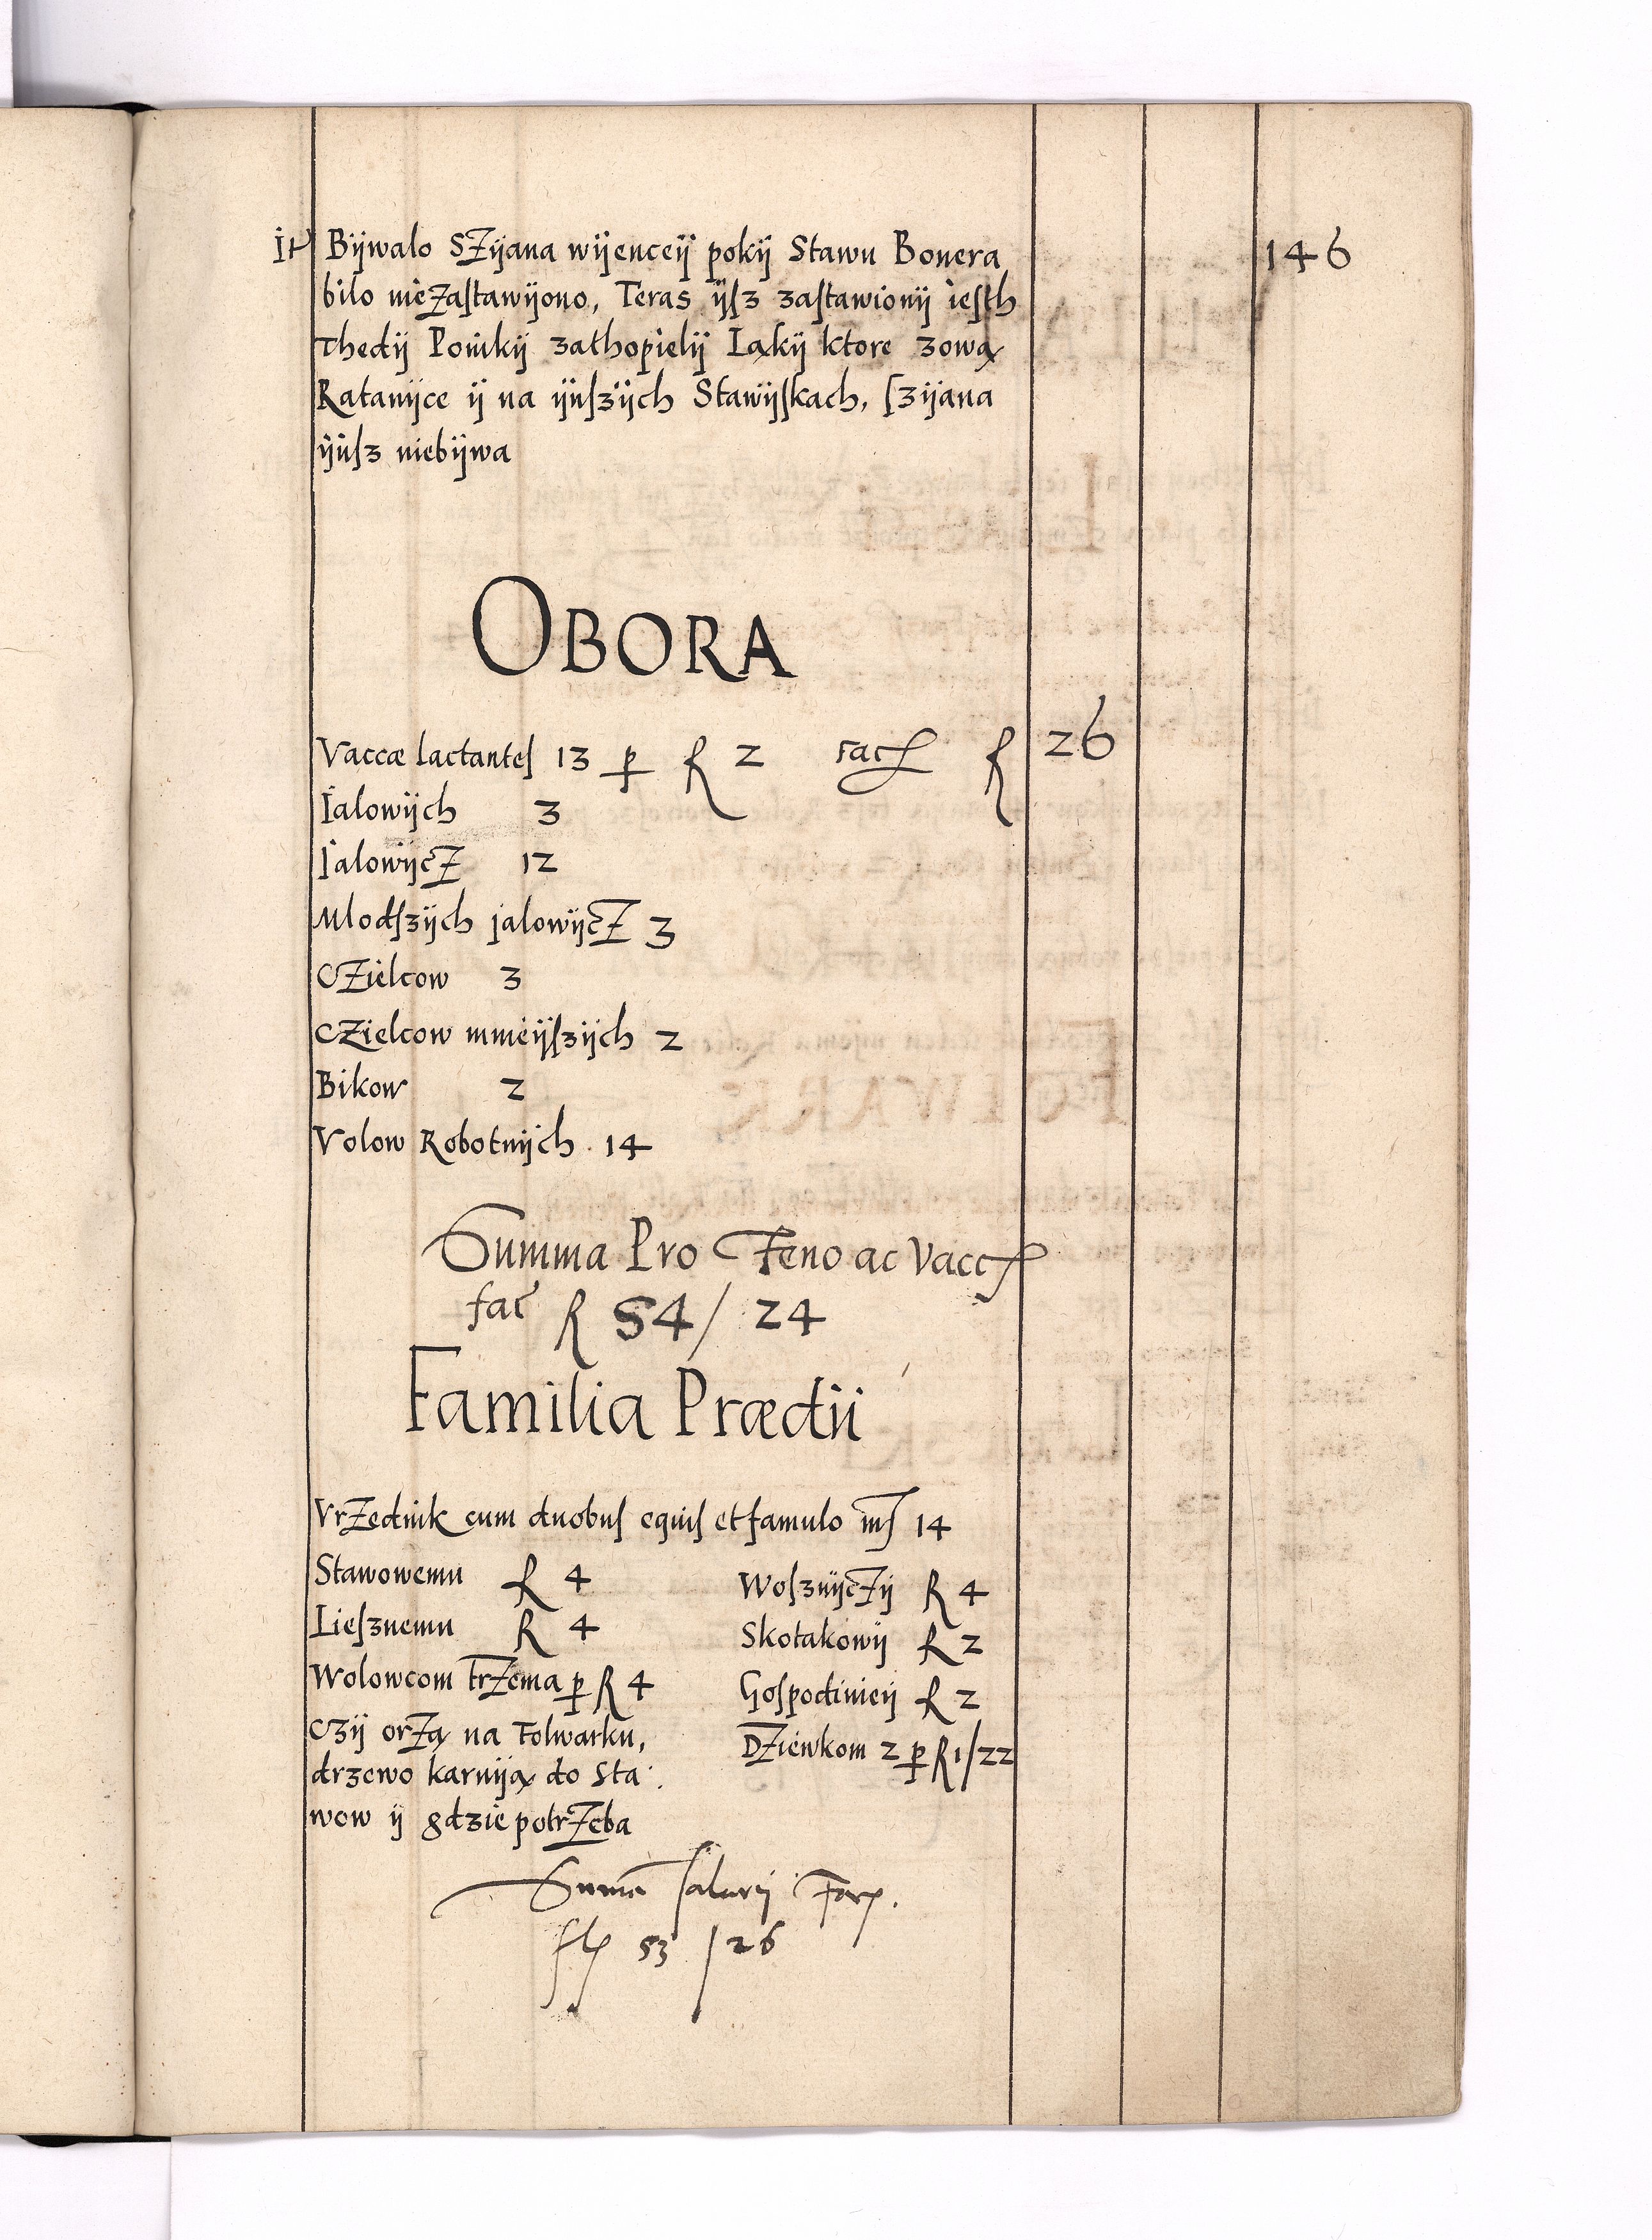 146
It Bÿwalo SZÿana wÿenceÿ pokÿ Stawu Bonera
bilo nieZastawÿono, Teras ÿsz zastawionÿ iesth
Thedÿ Ponikÿ zathopielÿ Iąkÿ ktore zową
Ratanÿce ÿ na ÿnszÿch Stawÿskach, szÿana
ÿusz niebÿwa
OBORA
Vaccæ lactantes 13 p R 2 fac R 26
Ialowÿch 3
IalowÿcZ 12
Mlodszÿch jalowÿcZ 3
CZielcow 3
CZielcow mnieÿszÿch 2
Bikow 2
Volow Robotnÿch 14
Summa Pro Feno ac Vacc
fac R 54/ 24
Familia Prædii
VrZednik cum duobus equis et famulo ms 14
Stawowemu R 4
Liesznemu R 4
Wolowcom trZema p R 4
Czÿ orZą na Folwarku,
drzewo karnÿą do Sta
wow ÿ gdzie potrZeba
WosznÿcZÿ R 4
Skotakowÿ R 2
Gospodinieÿ R 2
DZiewkom 2 p R 1/22
Suma salarÿ
53 / 26